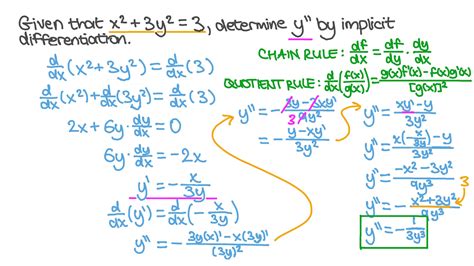 Given that x² + 3y² = 3, determine y'' by implicit
differentiation.
CHAIN RULE: df/dx = df/dy · dy/dx
QUOTIENT RULE: d/dx (f(x)/g(x)) = (g(x)f'(x) - f(x)g'(x))/[g(x)]²
d/dx (x² + 3y²) = d/dx (3)
d/dx (x²) + d/dx (3y²) = d/dx (3)
2x + 6y dy/dx = 0
6y · dy/dx = -2x
y' = - x/3y
d/dx (y') = d/dx (- x/3y)
y'' = - (3y(x)' - x(3y)')/(3y)²
y'' = - (3y - 3xy')/9y²
3
= - (y - xy')/3y²
y'' = (xy' - y)/3y²
y'' = (x(- x/3y) - y)/3y²
y'' = (-x² - 3y²)/9y³
y'' = - (x² + 3y²)/9y³
3
y'' = - 1/3y³